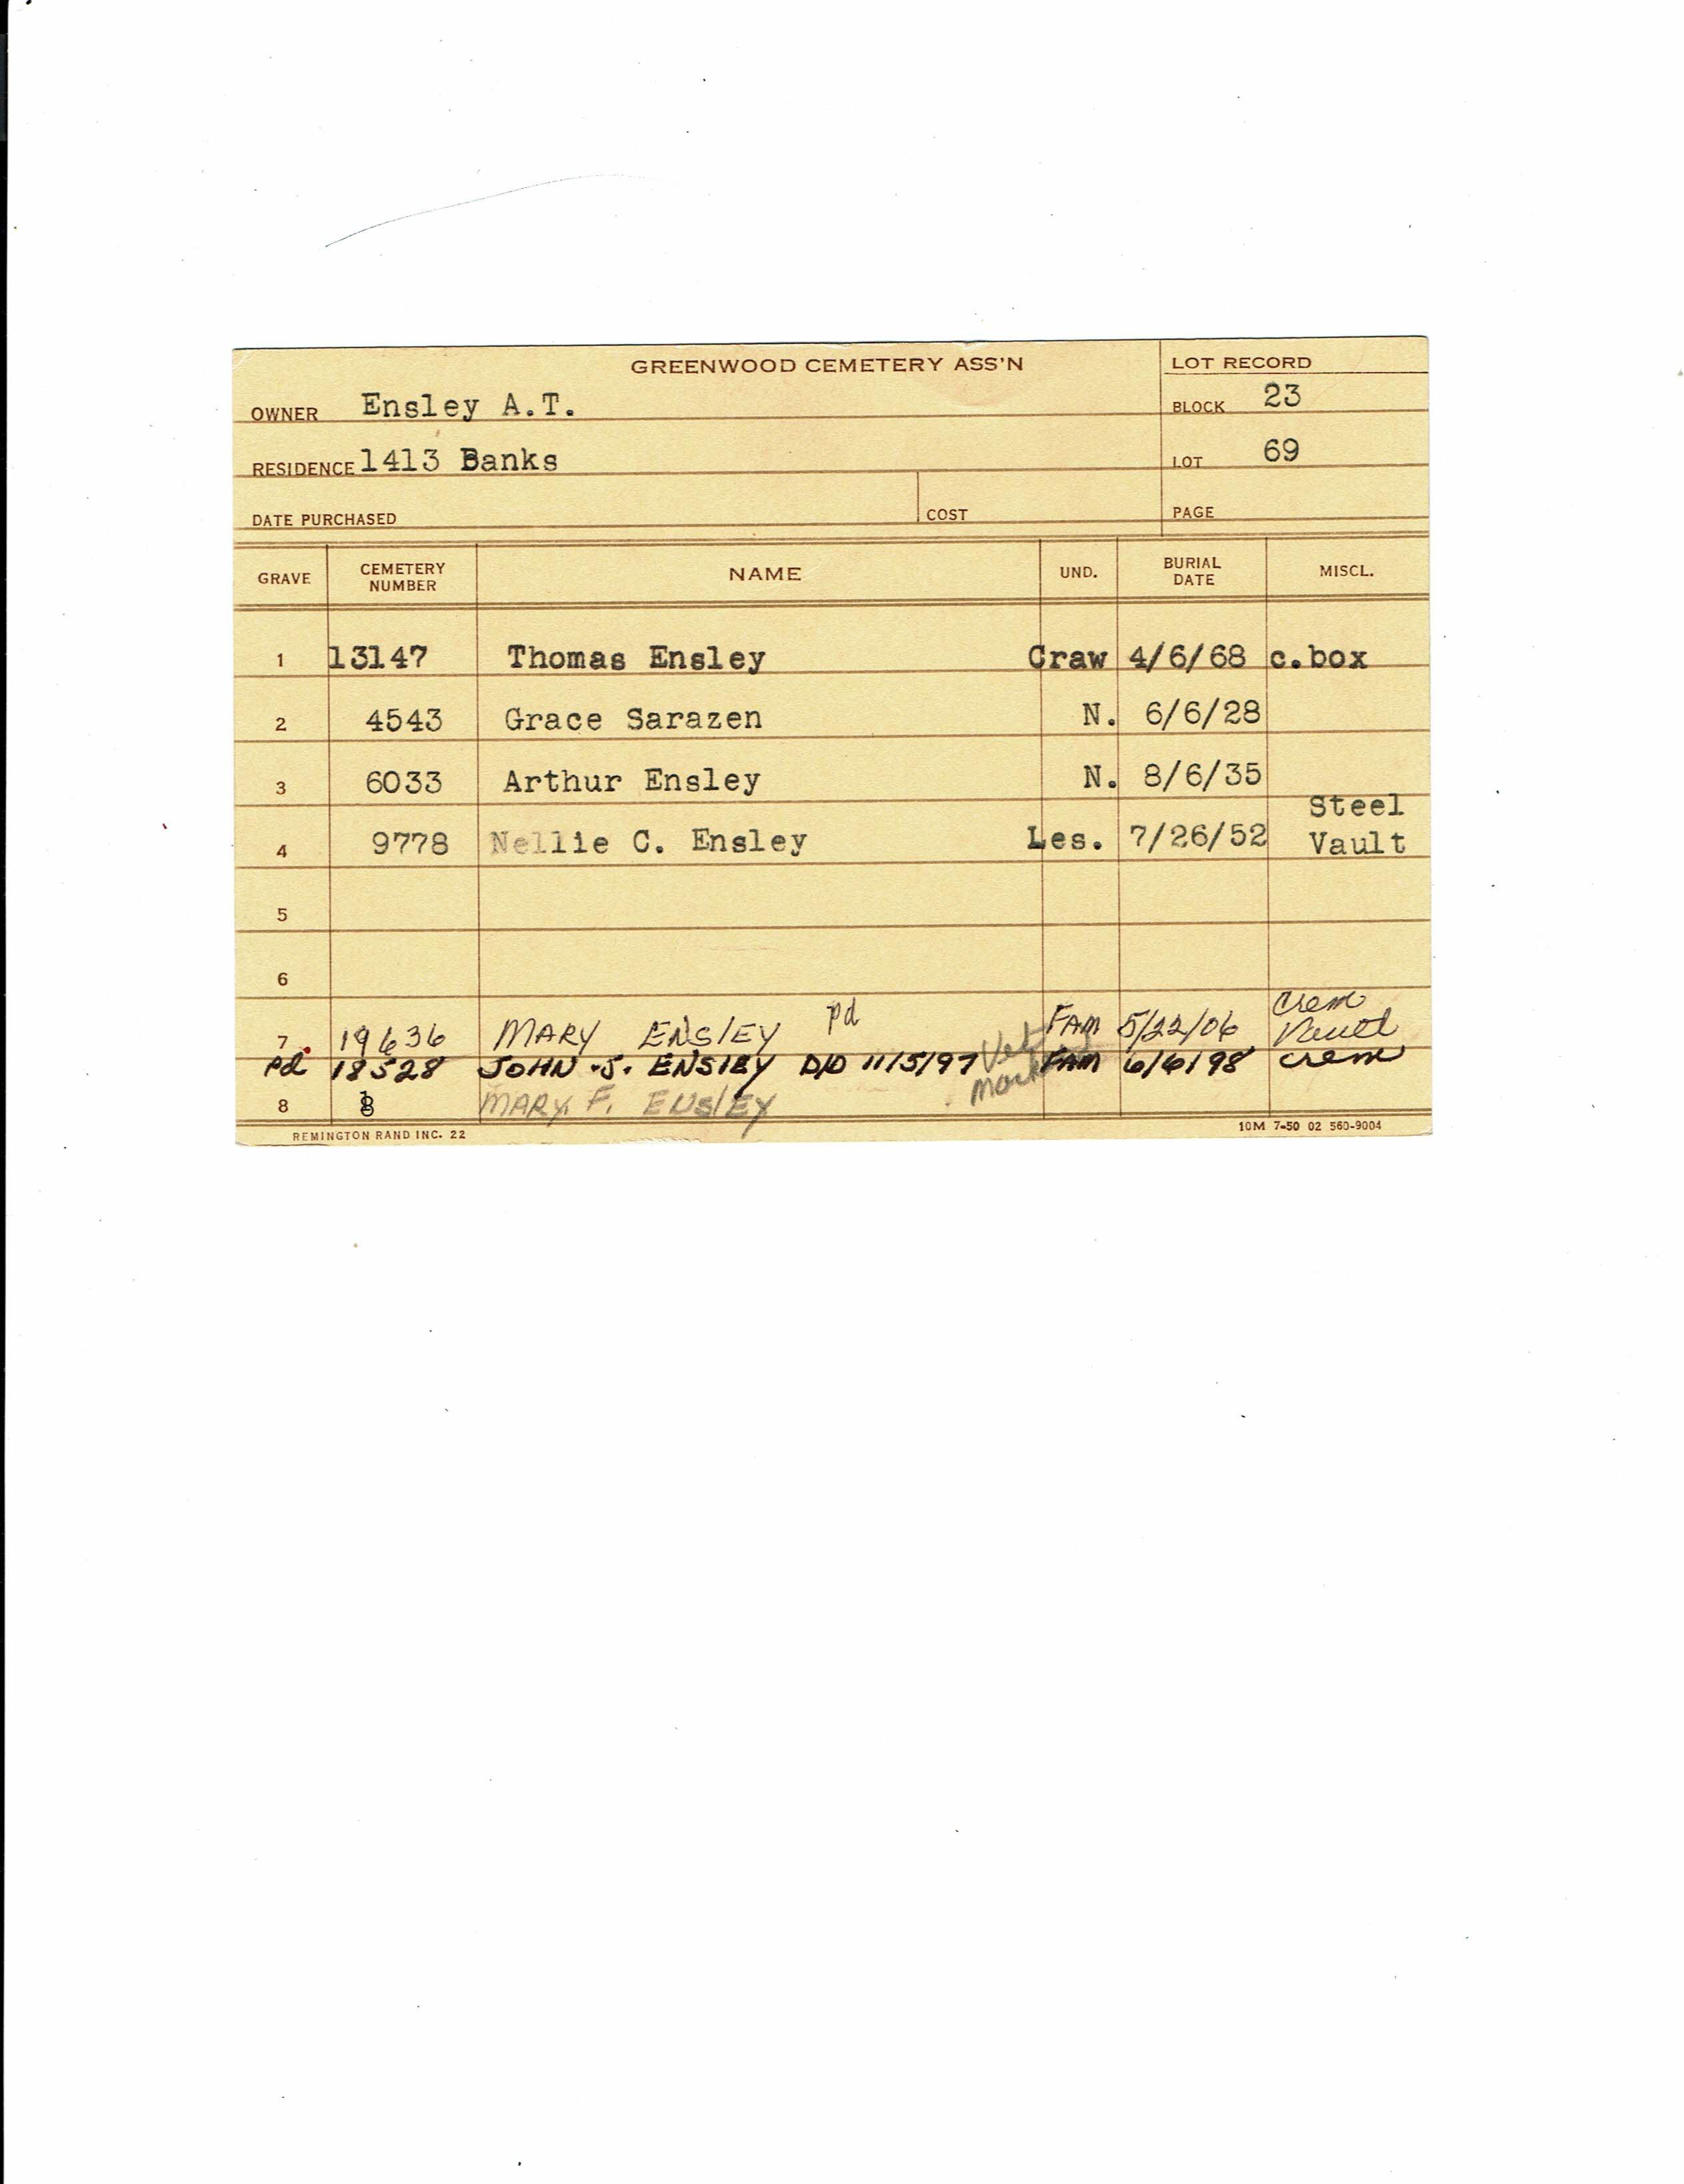 GREENWOOD CEMETERY ASS'N LOT RECORD
OWNER Ensley A.T. BLOCK 23
RESIDENCE 1413 Banks LOT 69
DATE PURCHASED COST PAGE
GRAVE CEMETERY NUMBER NAME UND. BURIAL DATE MISCL.
1 13147 Thomas Ensley Craw 4/6/68 c.box
2 4543 Grace Sarazen N. 6/6/28
3 6033 Arthur Ensley N. 8/6/35
4 9778 Nellie C. Ensley Les. 7/26/52 Steel Vault
5
6
7 19636 MARY ENSLEY pd FAM 5/22/06 Crem Vault
Pd 18528 JOHN J. ENSLEY D/D 11/5/97 Vet Marker FAM 6/6/98 crem
8 MARY F. ENSLEY
REMINGTON RAND INC. 22 10M 7-50 02 560-9004